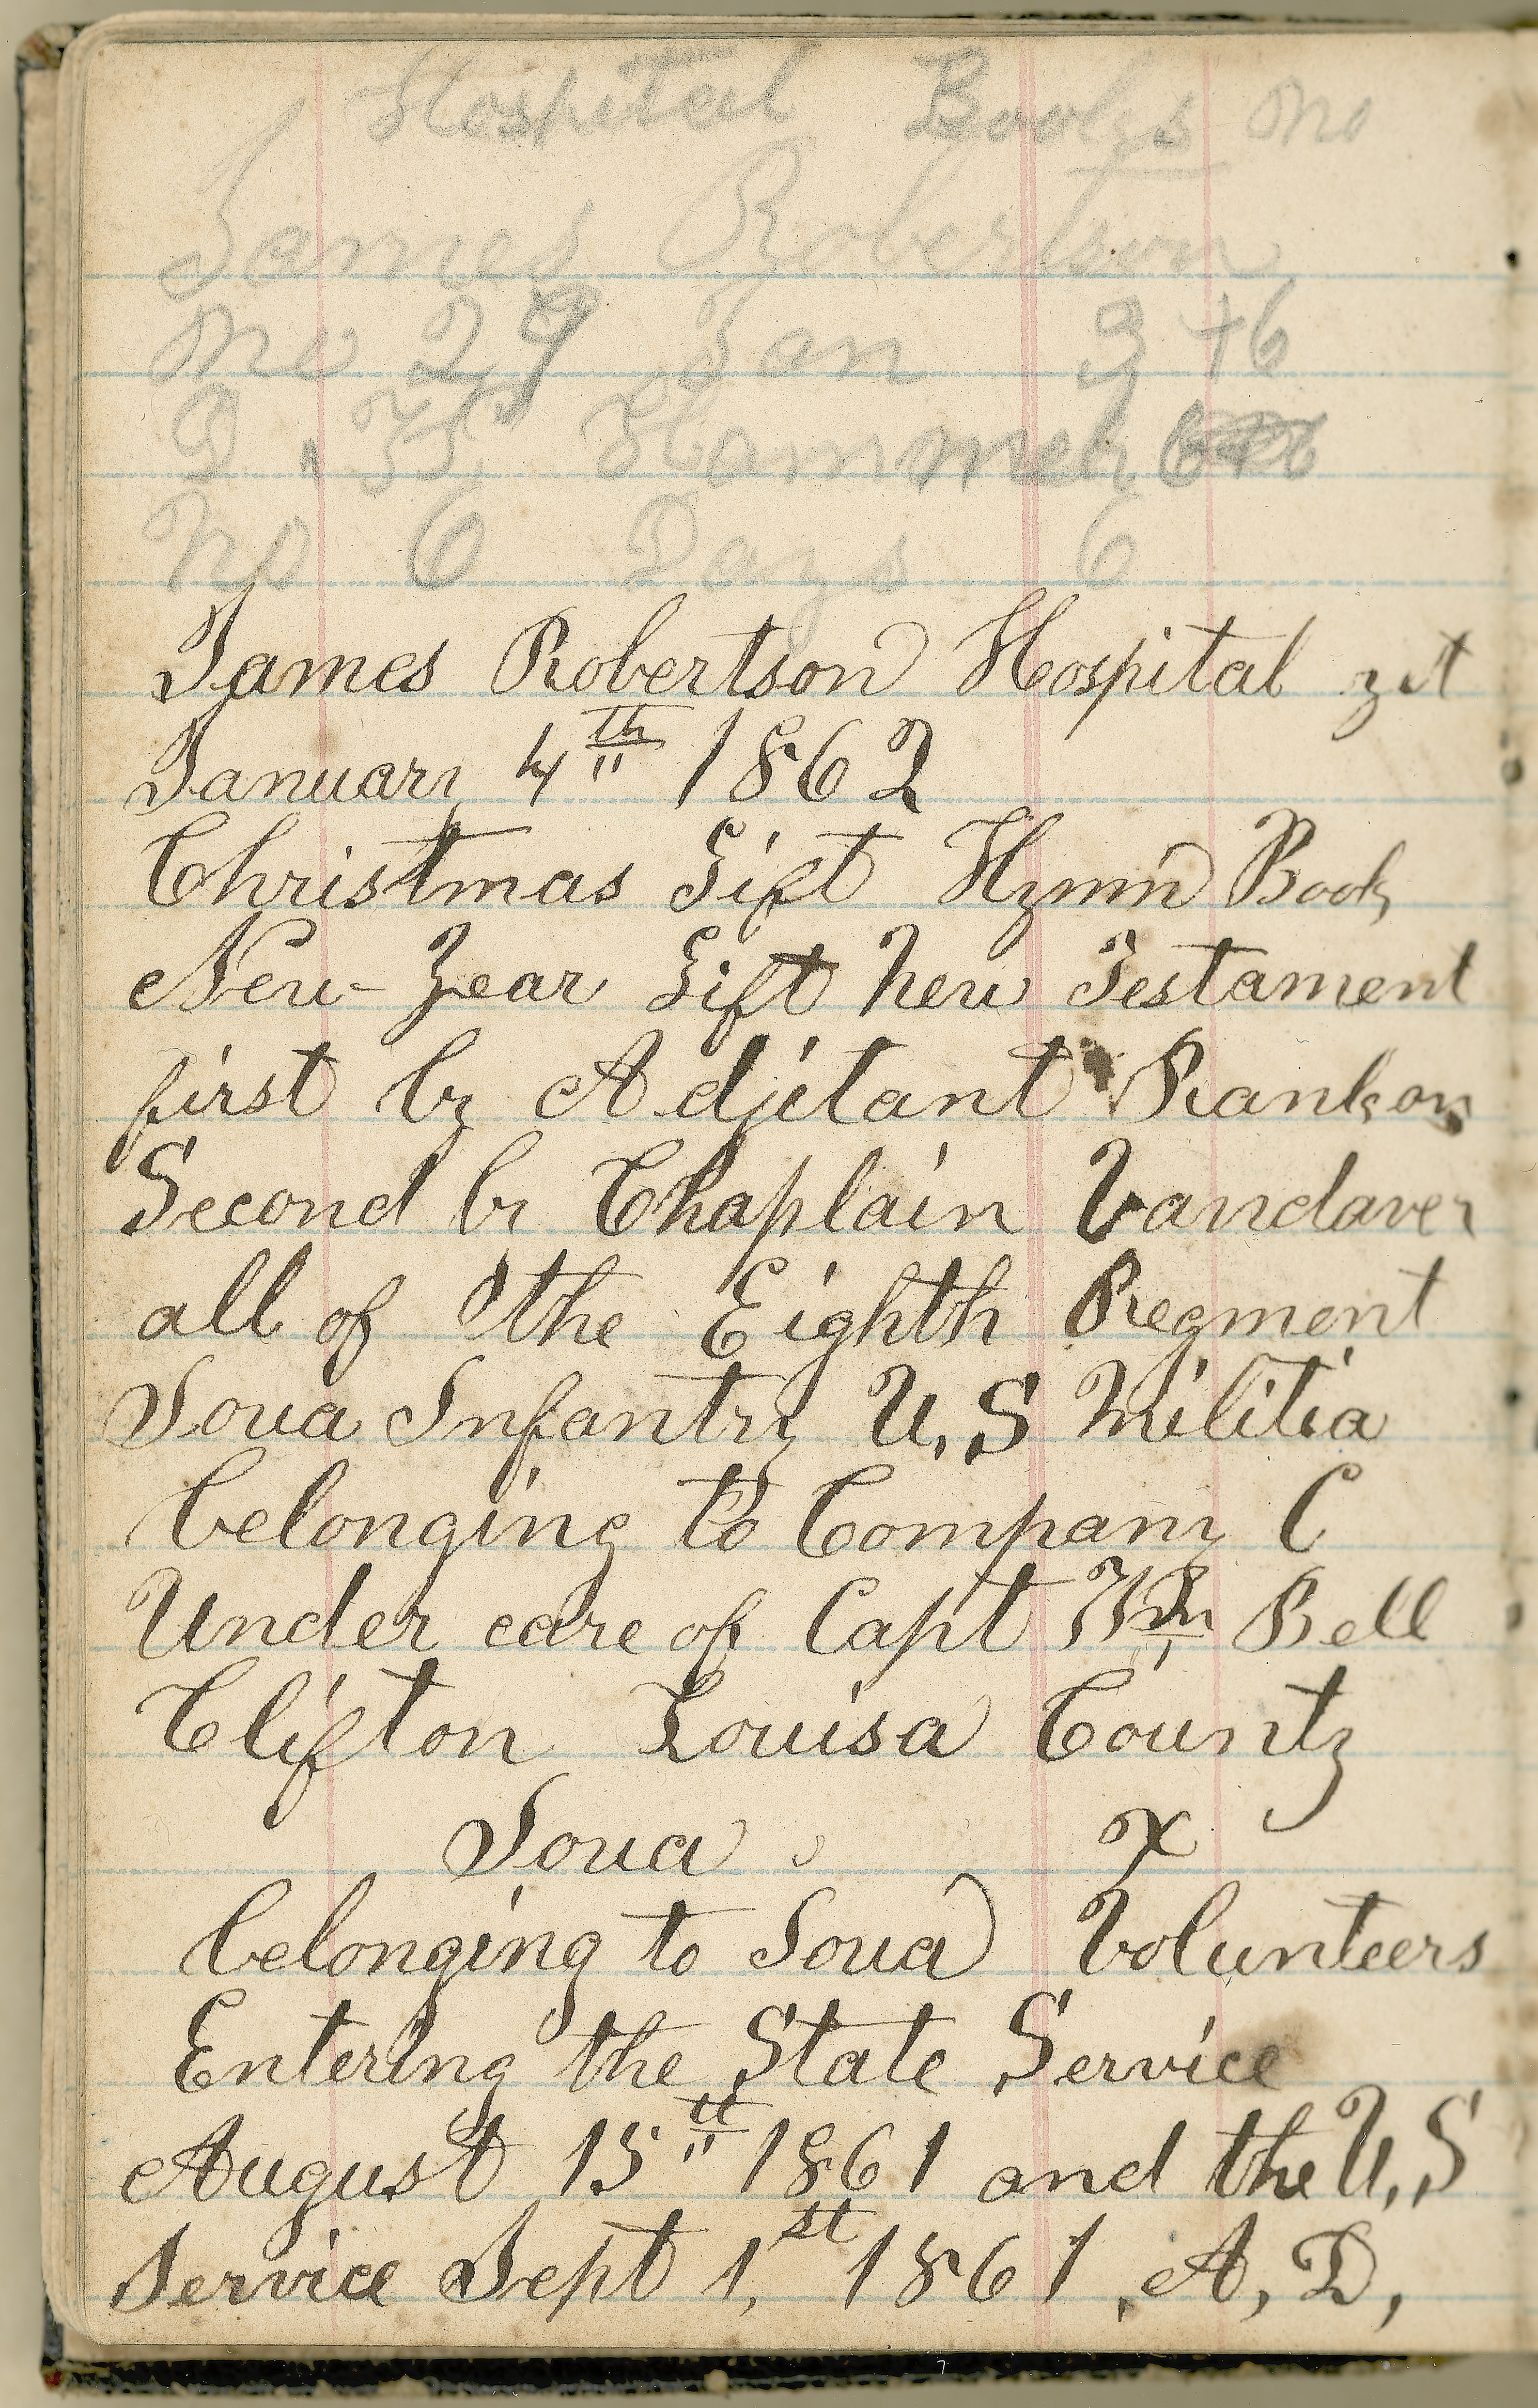 Hospital Books no
James Robertson
no 29 Jan 3 +6
Hammeh
no 6 Days 6
James Robertson Hospital
January 4th 1862
Christmas Gift Hymn Book
New-Year Gift New Testament
first by Adjitant Rankon
Second by Chaplain Vandaver
all of the Eighth Regment
Ioua Infantry U,S Militia
belonging to Company C
Under care of Capt Wm Bell
Clifton Louisa County
Ioua x
belonging to Ioua Volunteers
Entering the State Service
August 15th 1861 and the U,S
Service Sept 1,st 1861, A, D,